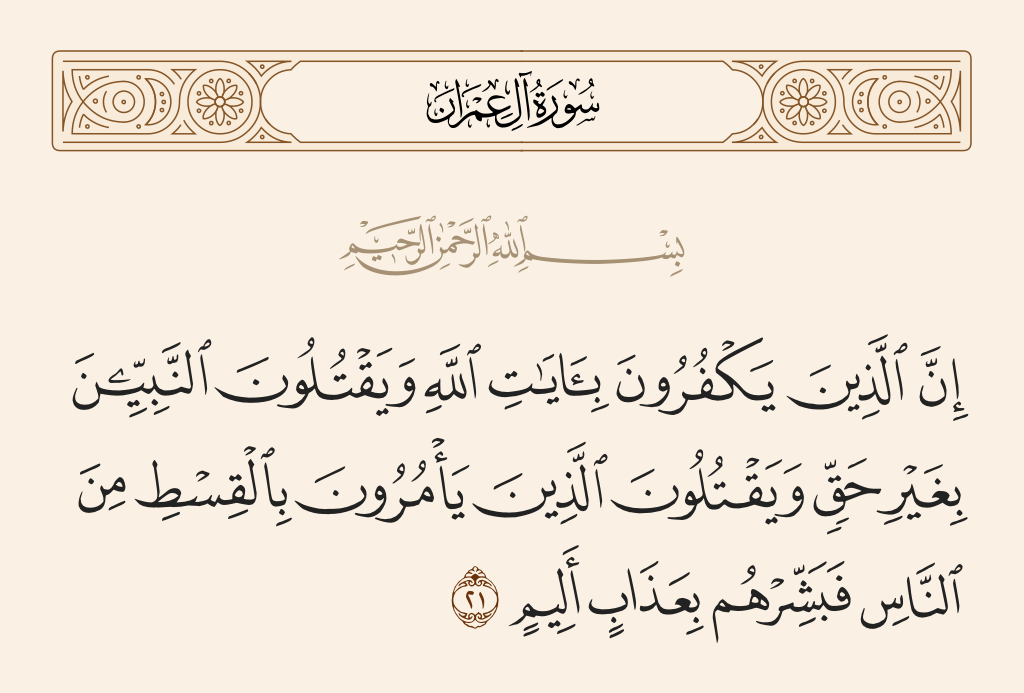 سُورَةُ آلِ عِمْرَان
بِسْمِ ٱللَّهِ ٱلرَّحْمَٰنِ ٱلرَّحِيمِ
إِنَّ ٱلَّذِينَ يَكْفُرُونَ بِـَٔايَـٰتِ ٱللَّهِ وَيَقْتُلُونَ ٱلنَّبِيِّـۧنَ
بِغَيْرِ حَقٍّ وَيَقْتُلُونَ ٱلَّذِينَ يَأْمُرُونَ بِٱلْقِسْطِ مِنَ
ٱلنَّاسِ فَبَشِّرْهُم بِعَذَابٍ أَلِيمٍ ٢١